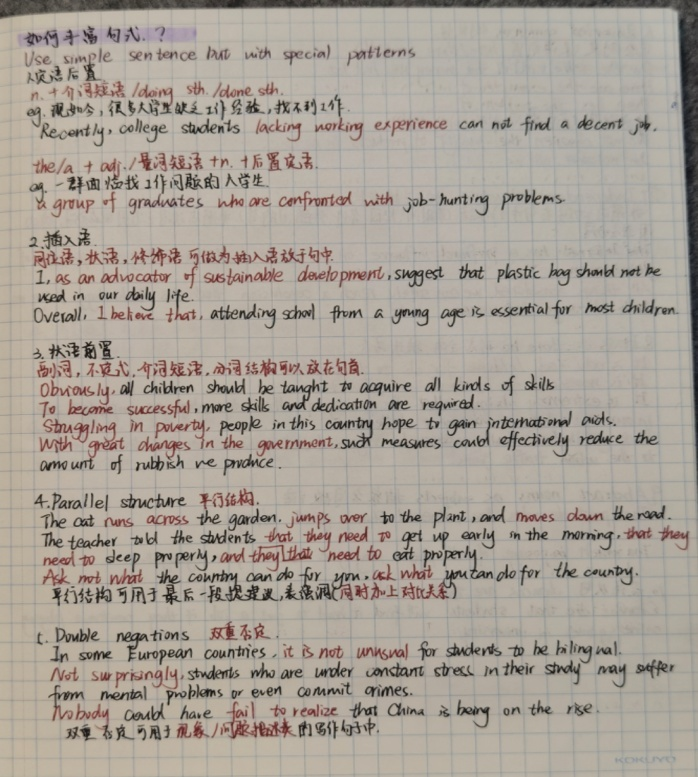 如何丰富句式.？
Use simple sentence but with special patterns
1.定语后置
n. + 介词短语 /doing sth. /done sth.
eg. 现如今，很多大学生缺乏工作经验，找不到工作.
Recently, college students lacking working experience can not find a decent job.
the/a + adj. /量词短语 +n. +后置定语.
eg. 一群面临找工作问题的大学生
a group of graduates who are confronted with job-hunting problems
2.插入语.
同位语，状语，修饰语 可做为插入语放于句中.
I, as an advocator of sustainable development, suggest that plastic bag should not be
used in our daily life.
Overall, I believe that, attending school from a young age is essential for most children.
3. 状语前置.
副词，不定式，介词短语，分词结构可以放在句首.
Obviously, all children should be taught to acquire all kinds of skills
To become successful, more skills and dedication are required.
Struggling in poverty, people in this country hope to gain international aids.
With great changes in the government, such measures could effectively reduce the
amount of rubbish we produce.
4.Parallel structure 平行结构.
The cat runs across the garden, jumps over to the plant, and moves down the road.
The teacher told the students that they need to get up early in the morning, that they
need to sleep properly, and they that need to eat properly.
Ask not what the country can do for you, ask what you can do for the country.
平行结构可用于最后一段提建议，表强调(同时加上对比关系)
5. Double negations 双重否定.
In some European countries, it is not unusual for students to be bilingual.
Not surprisingly, students who are under constant stress in their study may suffer
from mental problems or even commit crimes.
Nobody could have fail to realize that China is being on the rise.
双重否定可用于现象/问题描述类的写作句子中.
KOKUYO